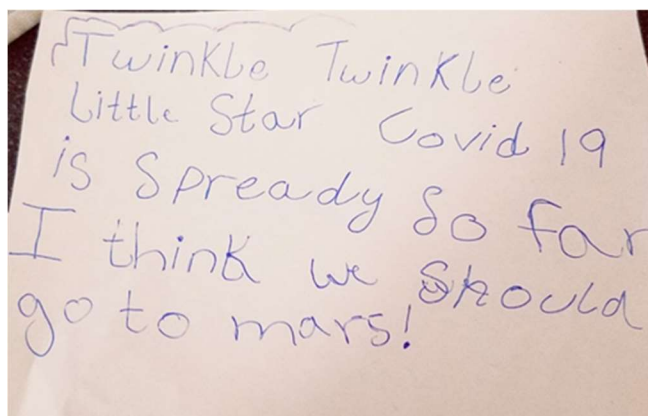 Twinkle Twinkle
Little Star Covid 19
is Spready So far
I think we Should
go to mars!